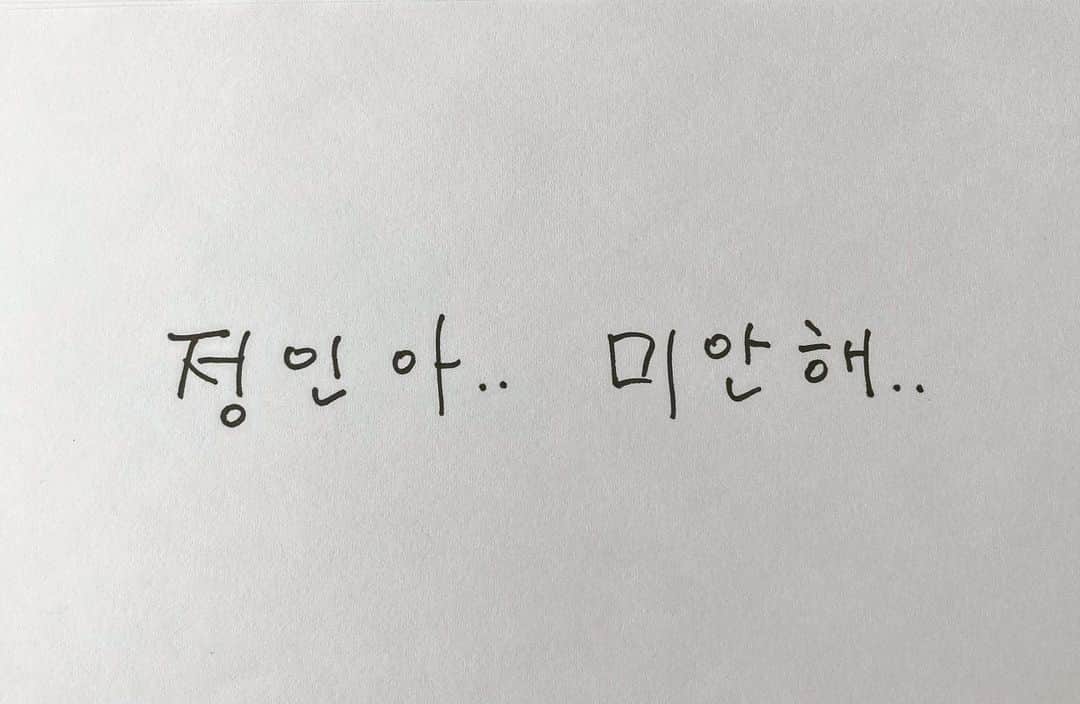 정인아.. 미안해..